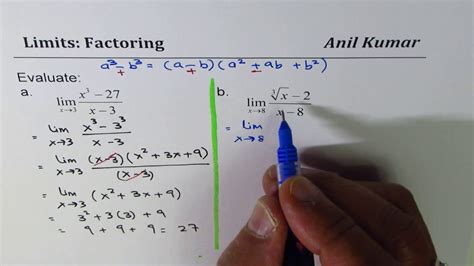 Limits: Factoring Anil Kumar
a³ ∓ b³ = (a ∓ b)(a² ± ab + b²)
Evaluate:
a. lim x→3 (x³ − 27)/(x − 3)
= lim x→3 (x³ − 3³)/(x − 3)
= lim x→3 (x−3)(x² + 3x + 9)/(x−3)
= lim x→3 (x² + 3x + 9)
= 3² + 3(3) + 9
= 9 + 9 + 9 = 27
b. lim x→8 (∛x − 2)/(x − 8)
= lim x→8